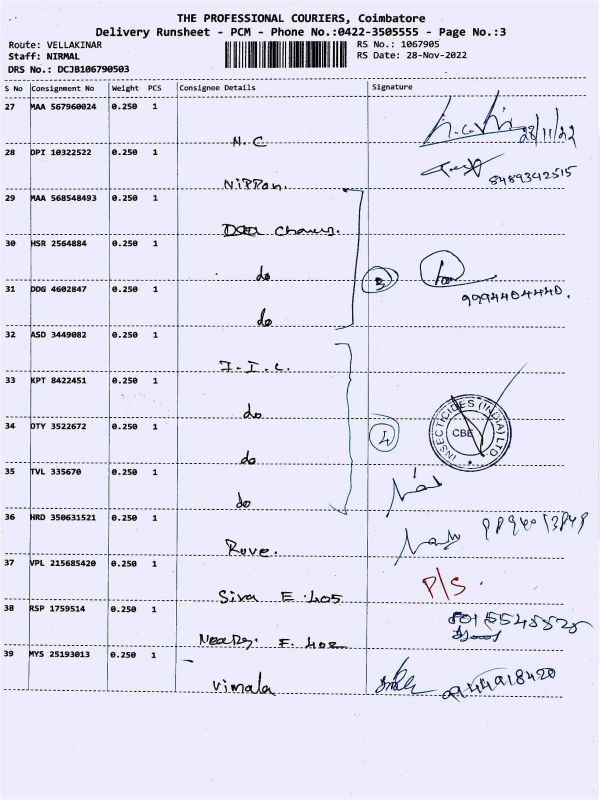 THE PROFESSIONAL COURIERS, Coimbatore
Delivery Runsheet - PCM - Phone No.:0422-3505555 - Page No.:3
Route: VELLAKINAR RS No.: 1067905
Staff: NIRMAL RS Date: 28-Nov-2022
DRS No.: DCJB106790503
S No Consignment No Weight PCS Consignee Details Signature
27 MAA 567960024 0.250 1
N.C 28/11/22
28 DPI 10322522 0.250 1
Nippon. 8489342515
29 MAA 568548493 0.250 1
30 HSR 2564884 0.250 1
do
31 DDG 4602847 0.250 1 3
9994404440.
do
32 ASD 3449082 0.250 1
I.I.L.
33 KPT 8422451 0.250 1
do
34 OTY 3522672 0.250 1 4
INSECTICIDES (INDIA) LTD
CBE
do
35 TVL 335670 0.250 1
do
36 HRD 350631521 0.250 1
37 VPL 215685420 0.250 1
P/S.
Siva E.405
38 RSP 1759514 0.250 1
F.402
39 MYS 25193013 0.250 1
Vimala 9944918420